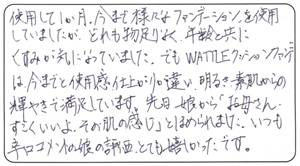 使用して1か月。今まで様々なファンデーションを使用
していましたが、どれも物足りなく、年齢と共に
くすみが気になっていました。でもWATTLEクッションファンデ
は、今までと使用感・仕上がりの違い、明るさ・素肌からの
輝やきで満足しています。先日娘から「お母さん
すごくいいよ、その肌の感じ」とほめられました。いつも
辛口コメントの娘の評価、とても嬉しかったです。